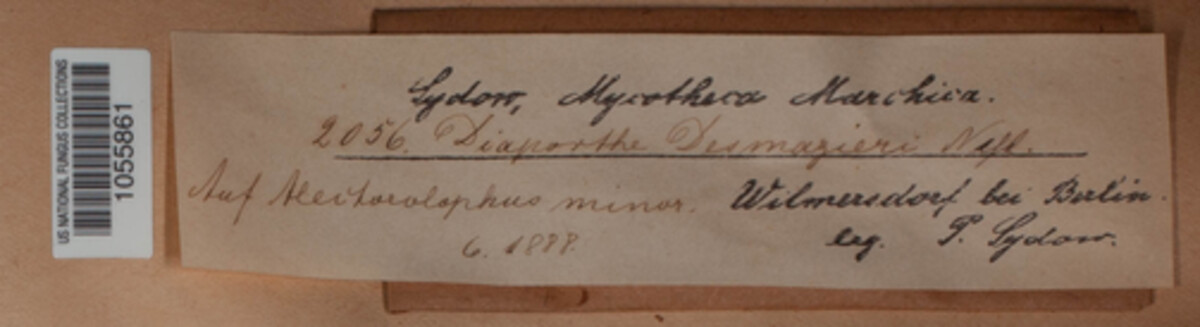 US NATIONAL FUNGUS COLLECTIONS
1055861
Sydow, Mycotheca Marchica.
2056. Diaporthe Desmazieri Nssl.
Auf Alectorolophus minor. Wilmersdorf bei Berlin.
6. 1888. leg. P. Sydow.